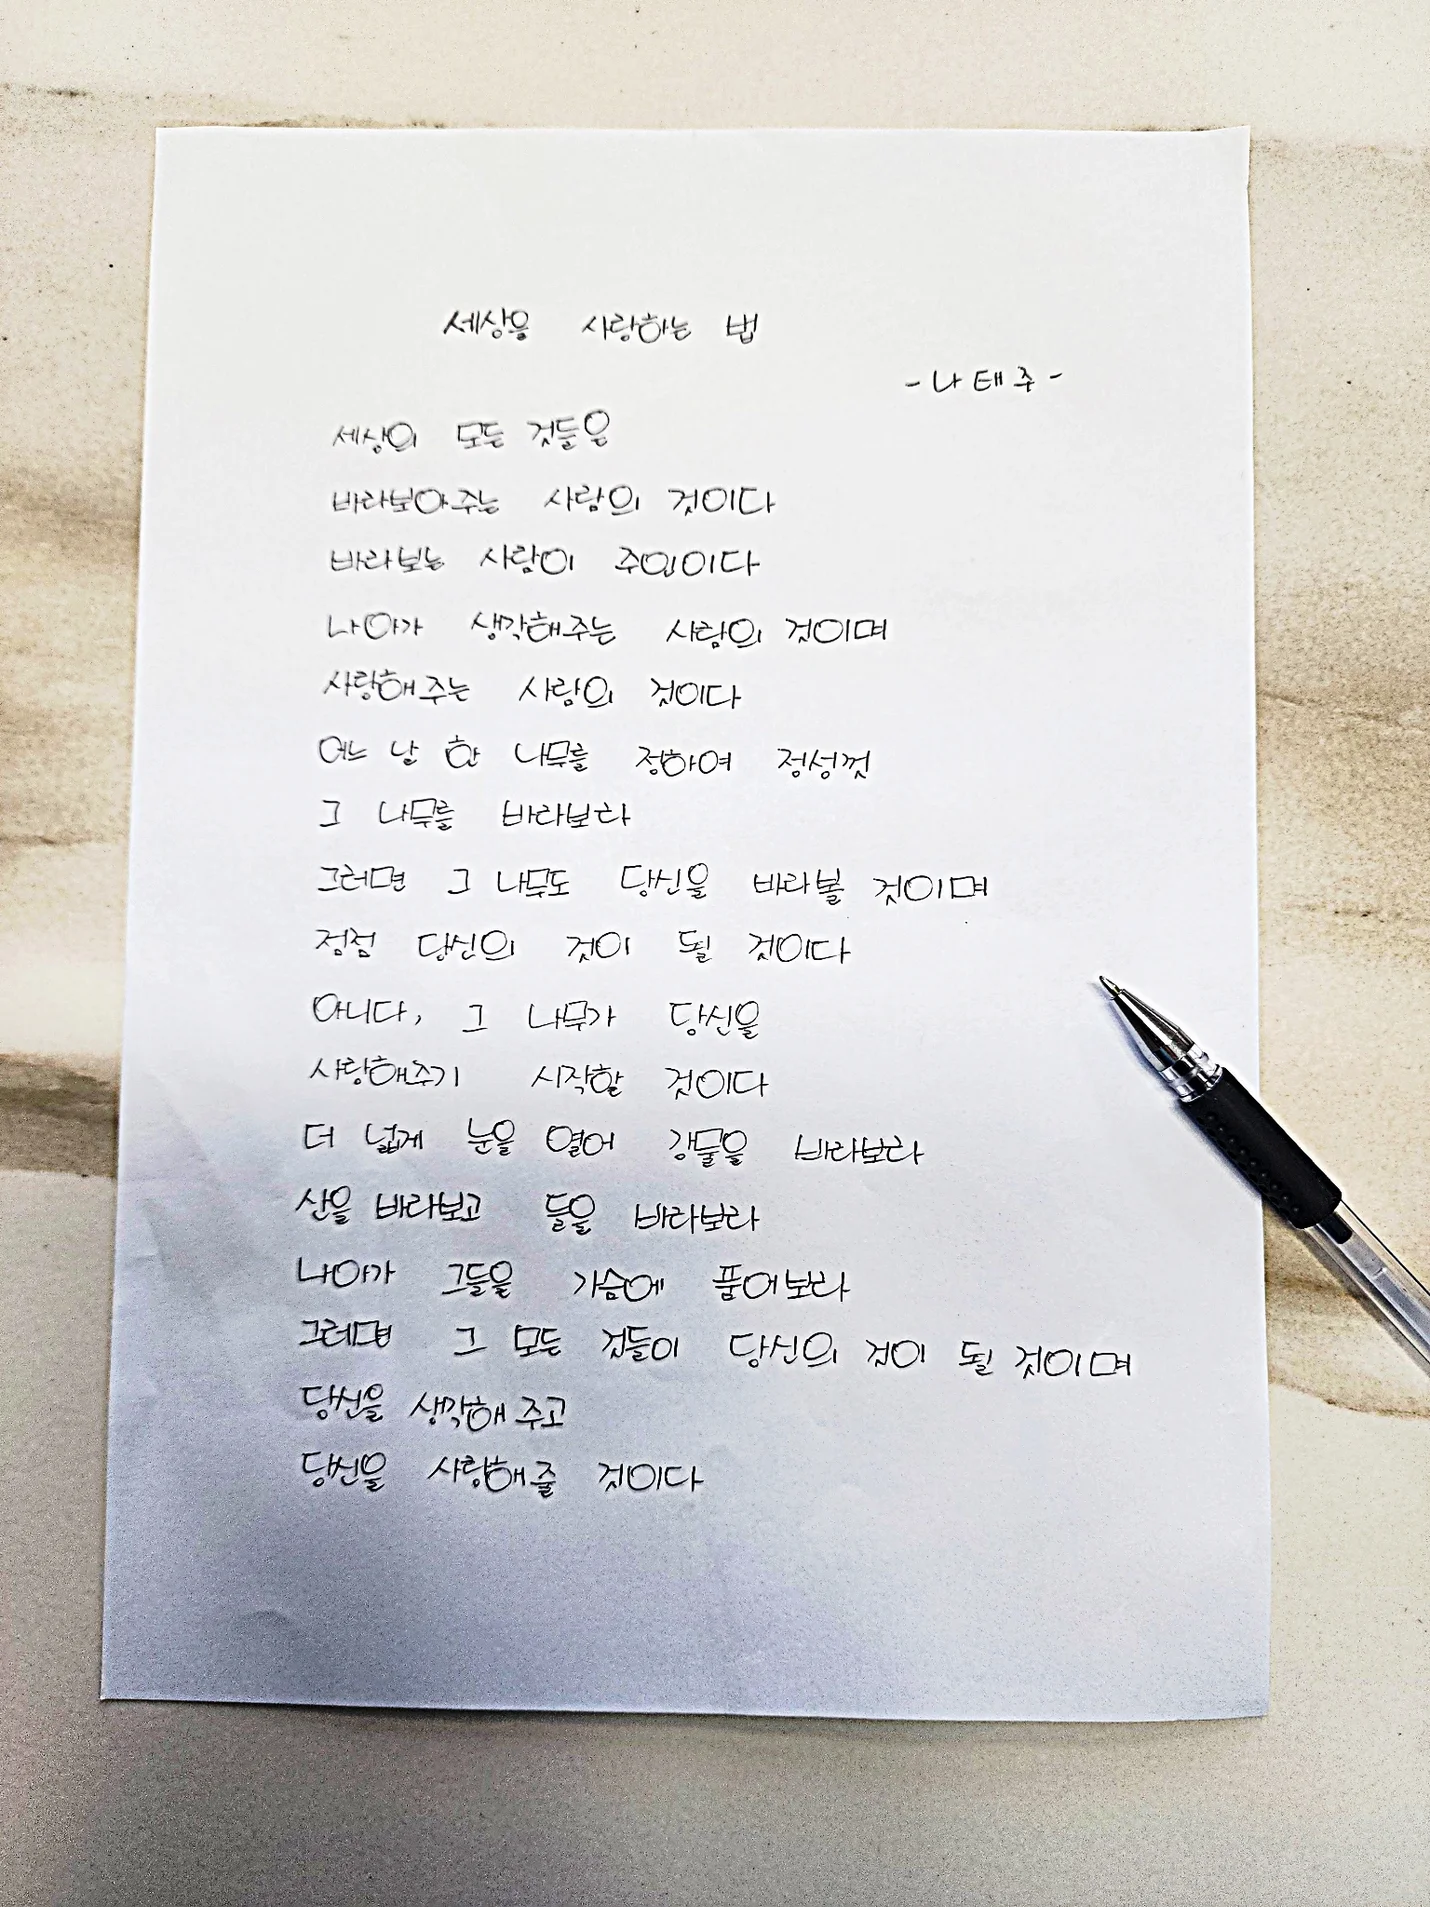 세상을 사랑하는 법
- 나태주 -
세상의 모든 것들은
바라보아주는 사람의 것이다
바라보는 사람이 주인이다
나아가 생각해주는 사람의 것이며
사랑해주는 사람의 것이다
어느 날 한 나무를 정하여 정성껏
그 나무를 바라보라
그러면 그 나무도 당신을 바라볼 것이며
점점 당신의 것이 될 것이다
아니다, 그 나무가 당신을
사랑해주기 시작할 것이다
더 넓게 눈을 열어 강물을 바라보라
산을 바라보고 들을 바라보라
나아가 그들을 가슴에 품어보라
그러면 그 모든 것들이 당신의 것이 될 것이며
당신을 생각해 주고
당신을 사랑해 줄 것이다